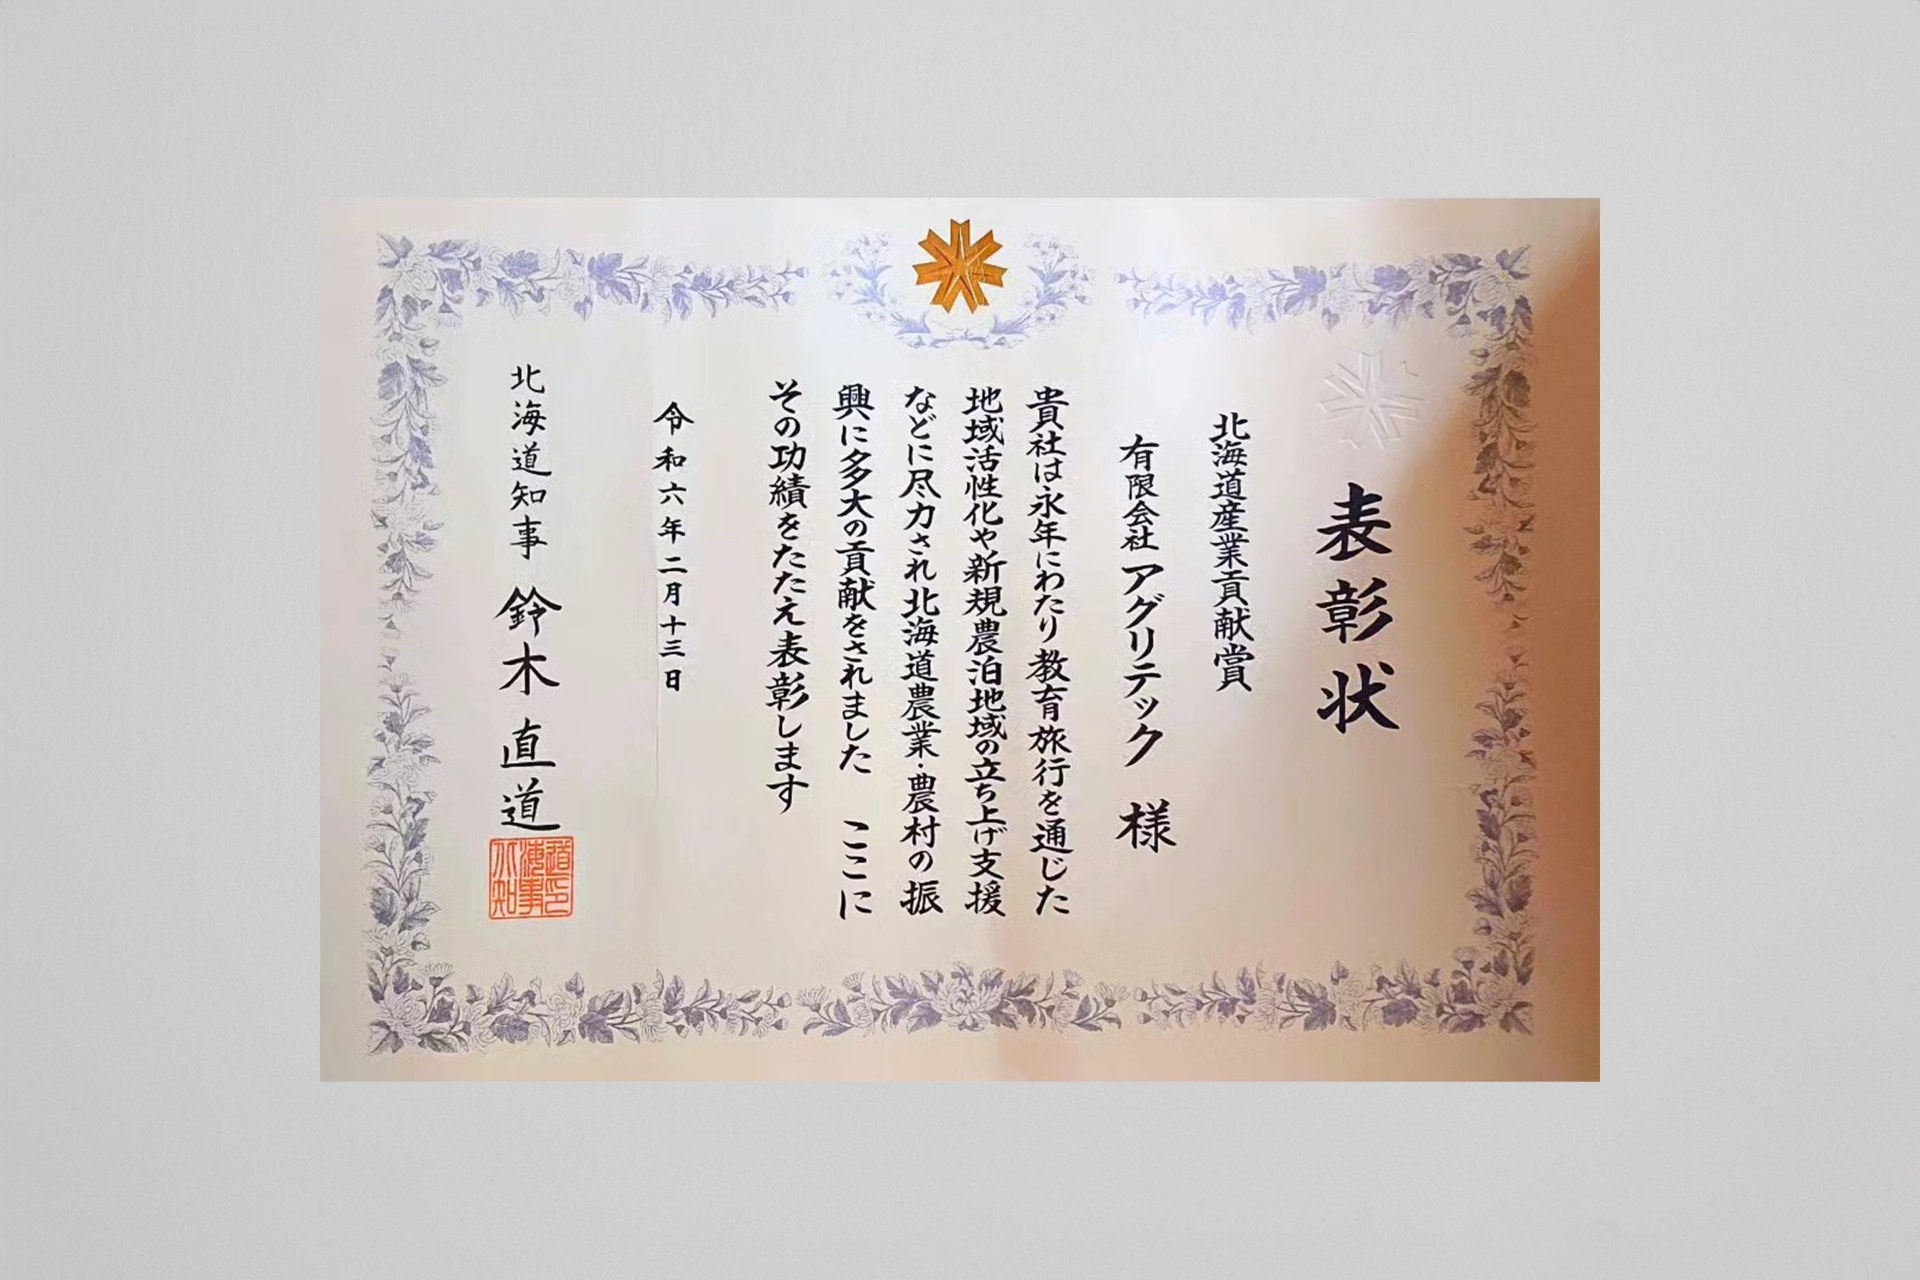 表彰状
北海道産業貢献賞
有限会社アグリテック 様
貴社は永年にわたり教育旅行を通じた
地域活性化や新規農泊地域の立ち上げ支援
などに尽力され北海道農業・農村の振
興に多大の貢献をされました ここに
その功績をたたえ表彰します
令和六年二月十三日
北海道知事 鈴木直道
道印
海事
北知